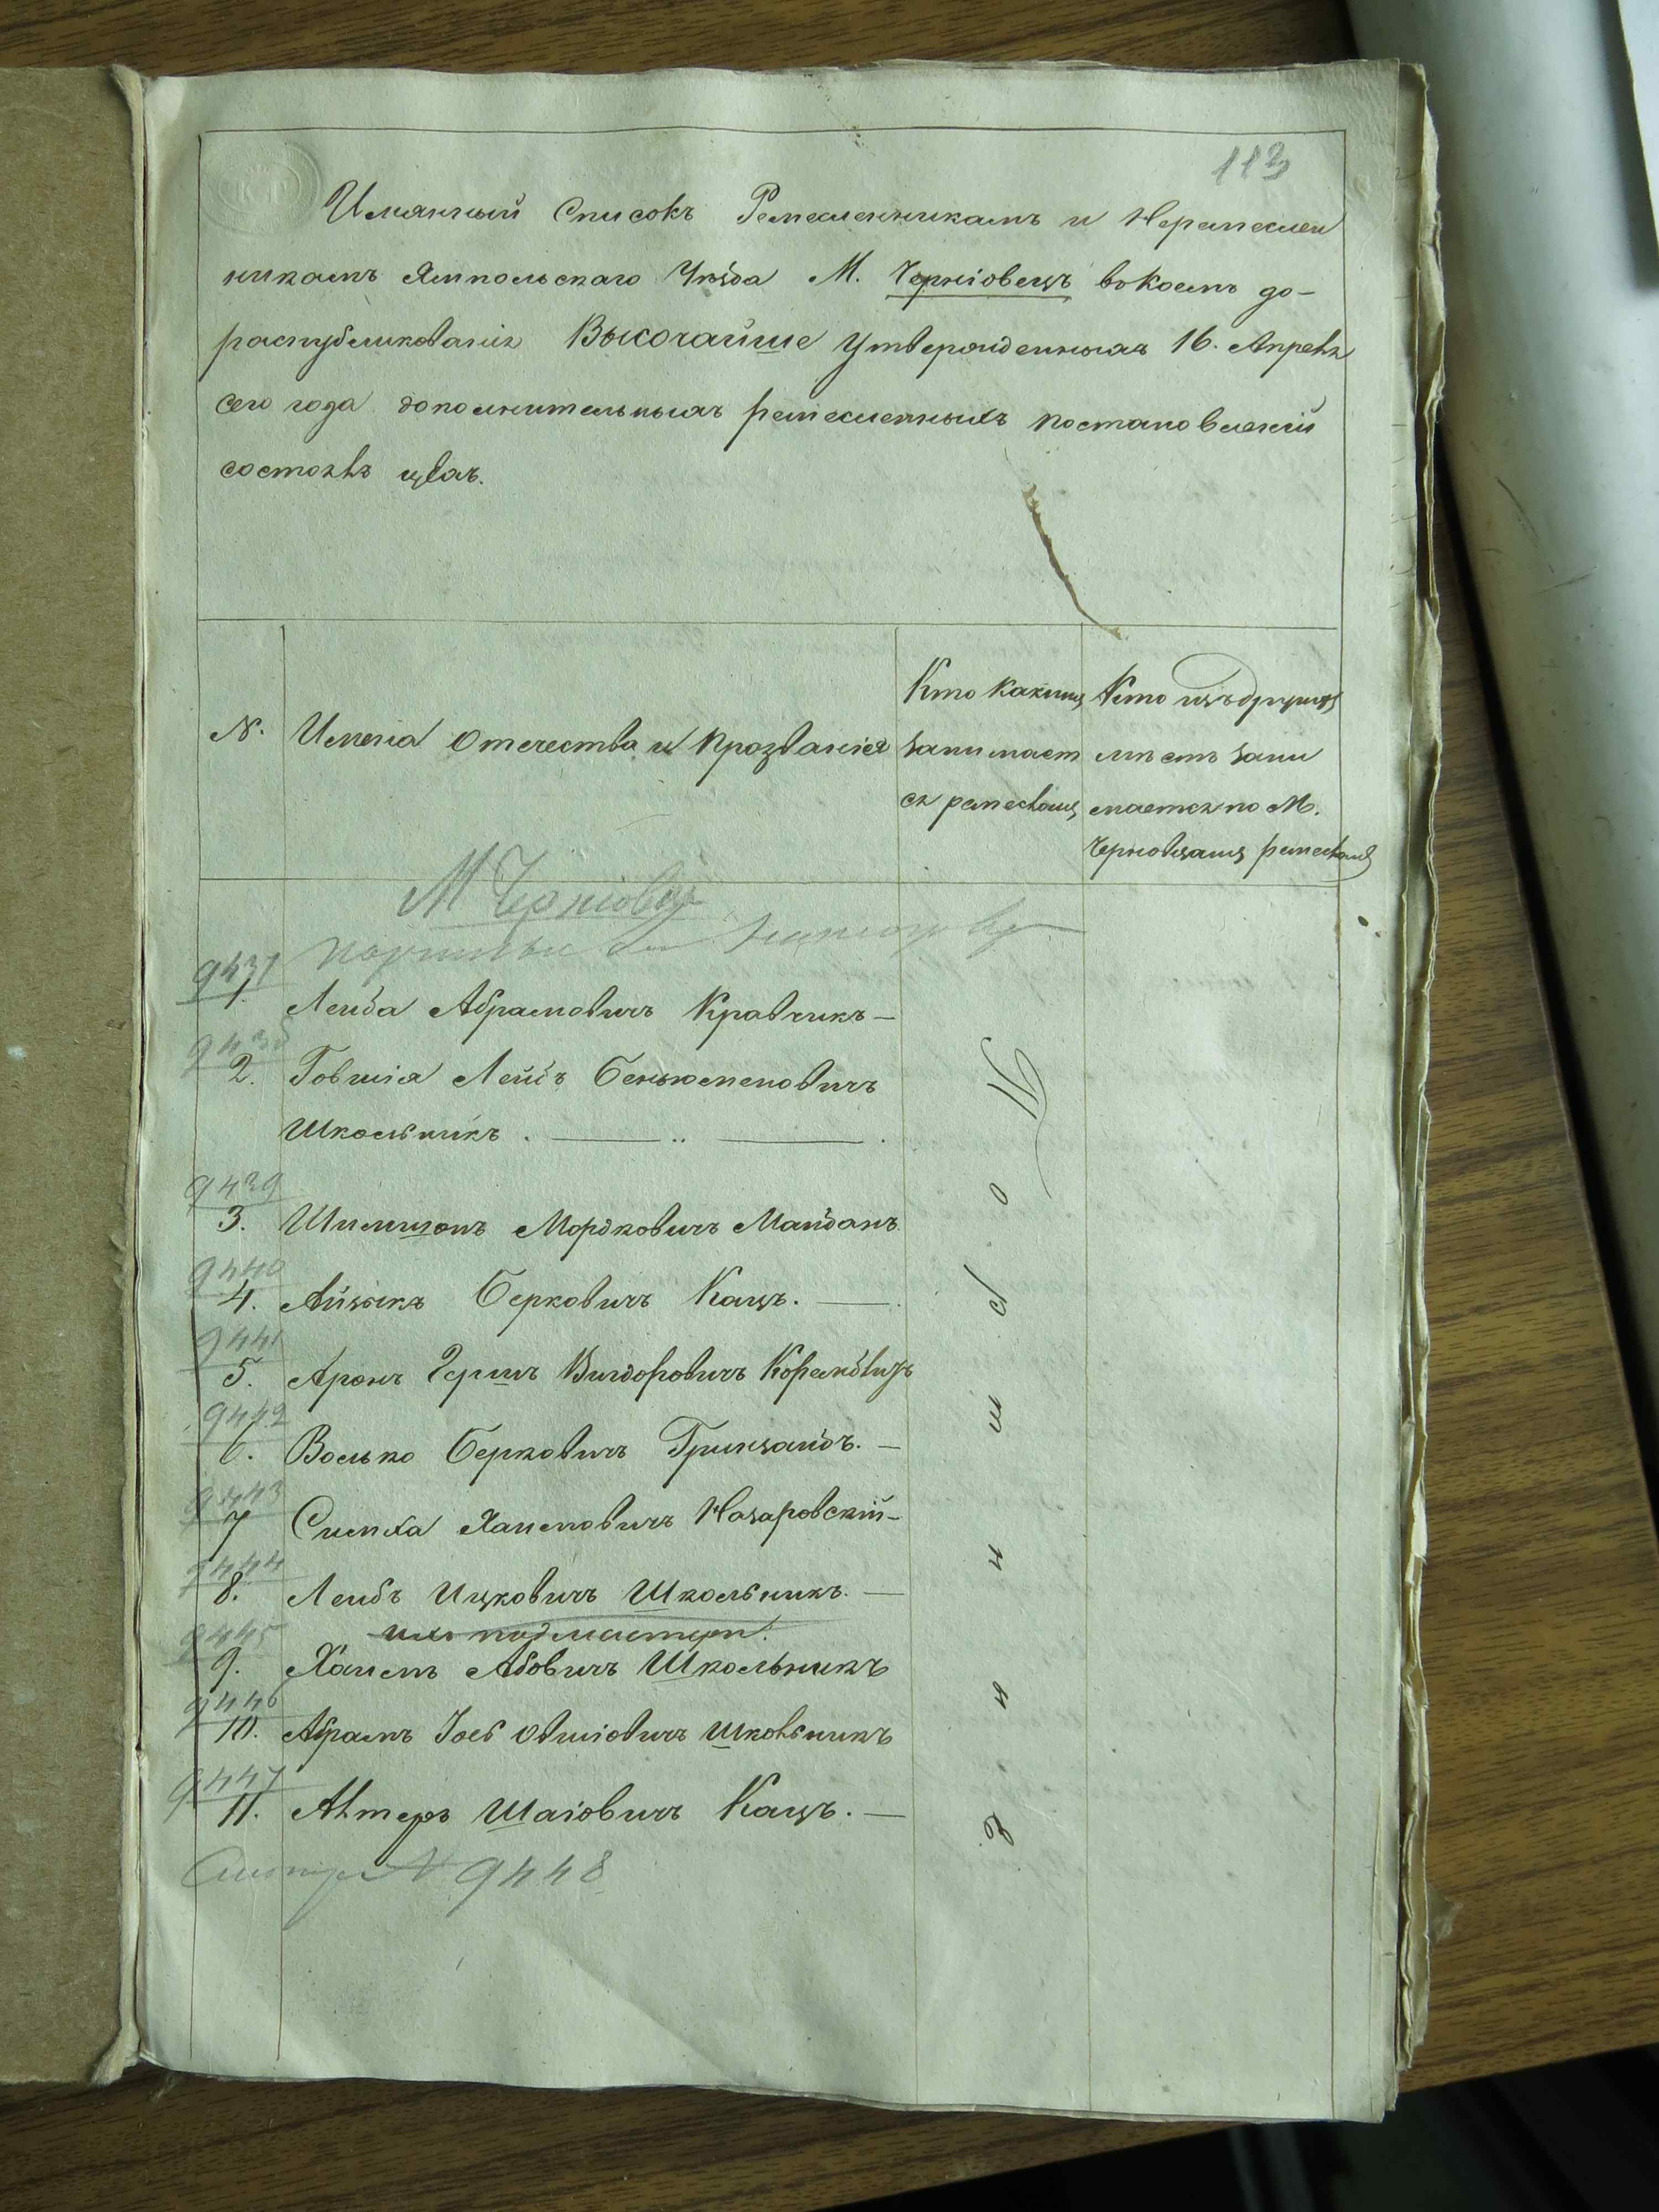 113
Имянный Списокъ Ремесленникамъ и Неремеслен
никамъ Ямпольскаго Уѣзда М. Черніовецъ вокоемъ до-
распубликованія Высочайше утвержденныхъ 16. Апрѣля
сего года дополнительныхъ ремесленныхъ постановленій
состоялъ цѣхъ.
N. Имена Отечества и Прозванія
Кто какимъ
занимает
ся ремесломъ
Кто изъ другихъ
мѣстъ зани
мается по М.
Черновцамъ ремесломъ
М Черніовцы
9437
1. Лейба Абрамовичъ Кравчикъ —
9438
2. Говшія Лейбъ Беньюменовичъ
Школьникъ.
9439
3. Шимшонъ Мордковичъ Майданъ.
9440
4. Айзыкъ Берковичъ Кацъ. —
9441
5. Аронъ Гершъ Вигдоровичъ
9442
6. Волько Берковичъ Гринзайдъ. —
9443
7 Симха Хаимовичъ Назаровскій —
9444
8. Лейбъ Ицковичъ Школьникъ. —
ихъ подмастери.
9445
9. Хаимъ Абовичъ Школьникъ
9446
10. Абрамъ Іось Овшіовичъ Школьникъ
9447
11. Алтеръ Шаіовичъ Кацъ. —
N 9448